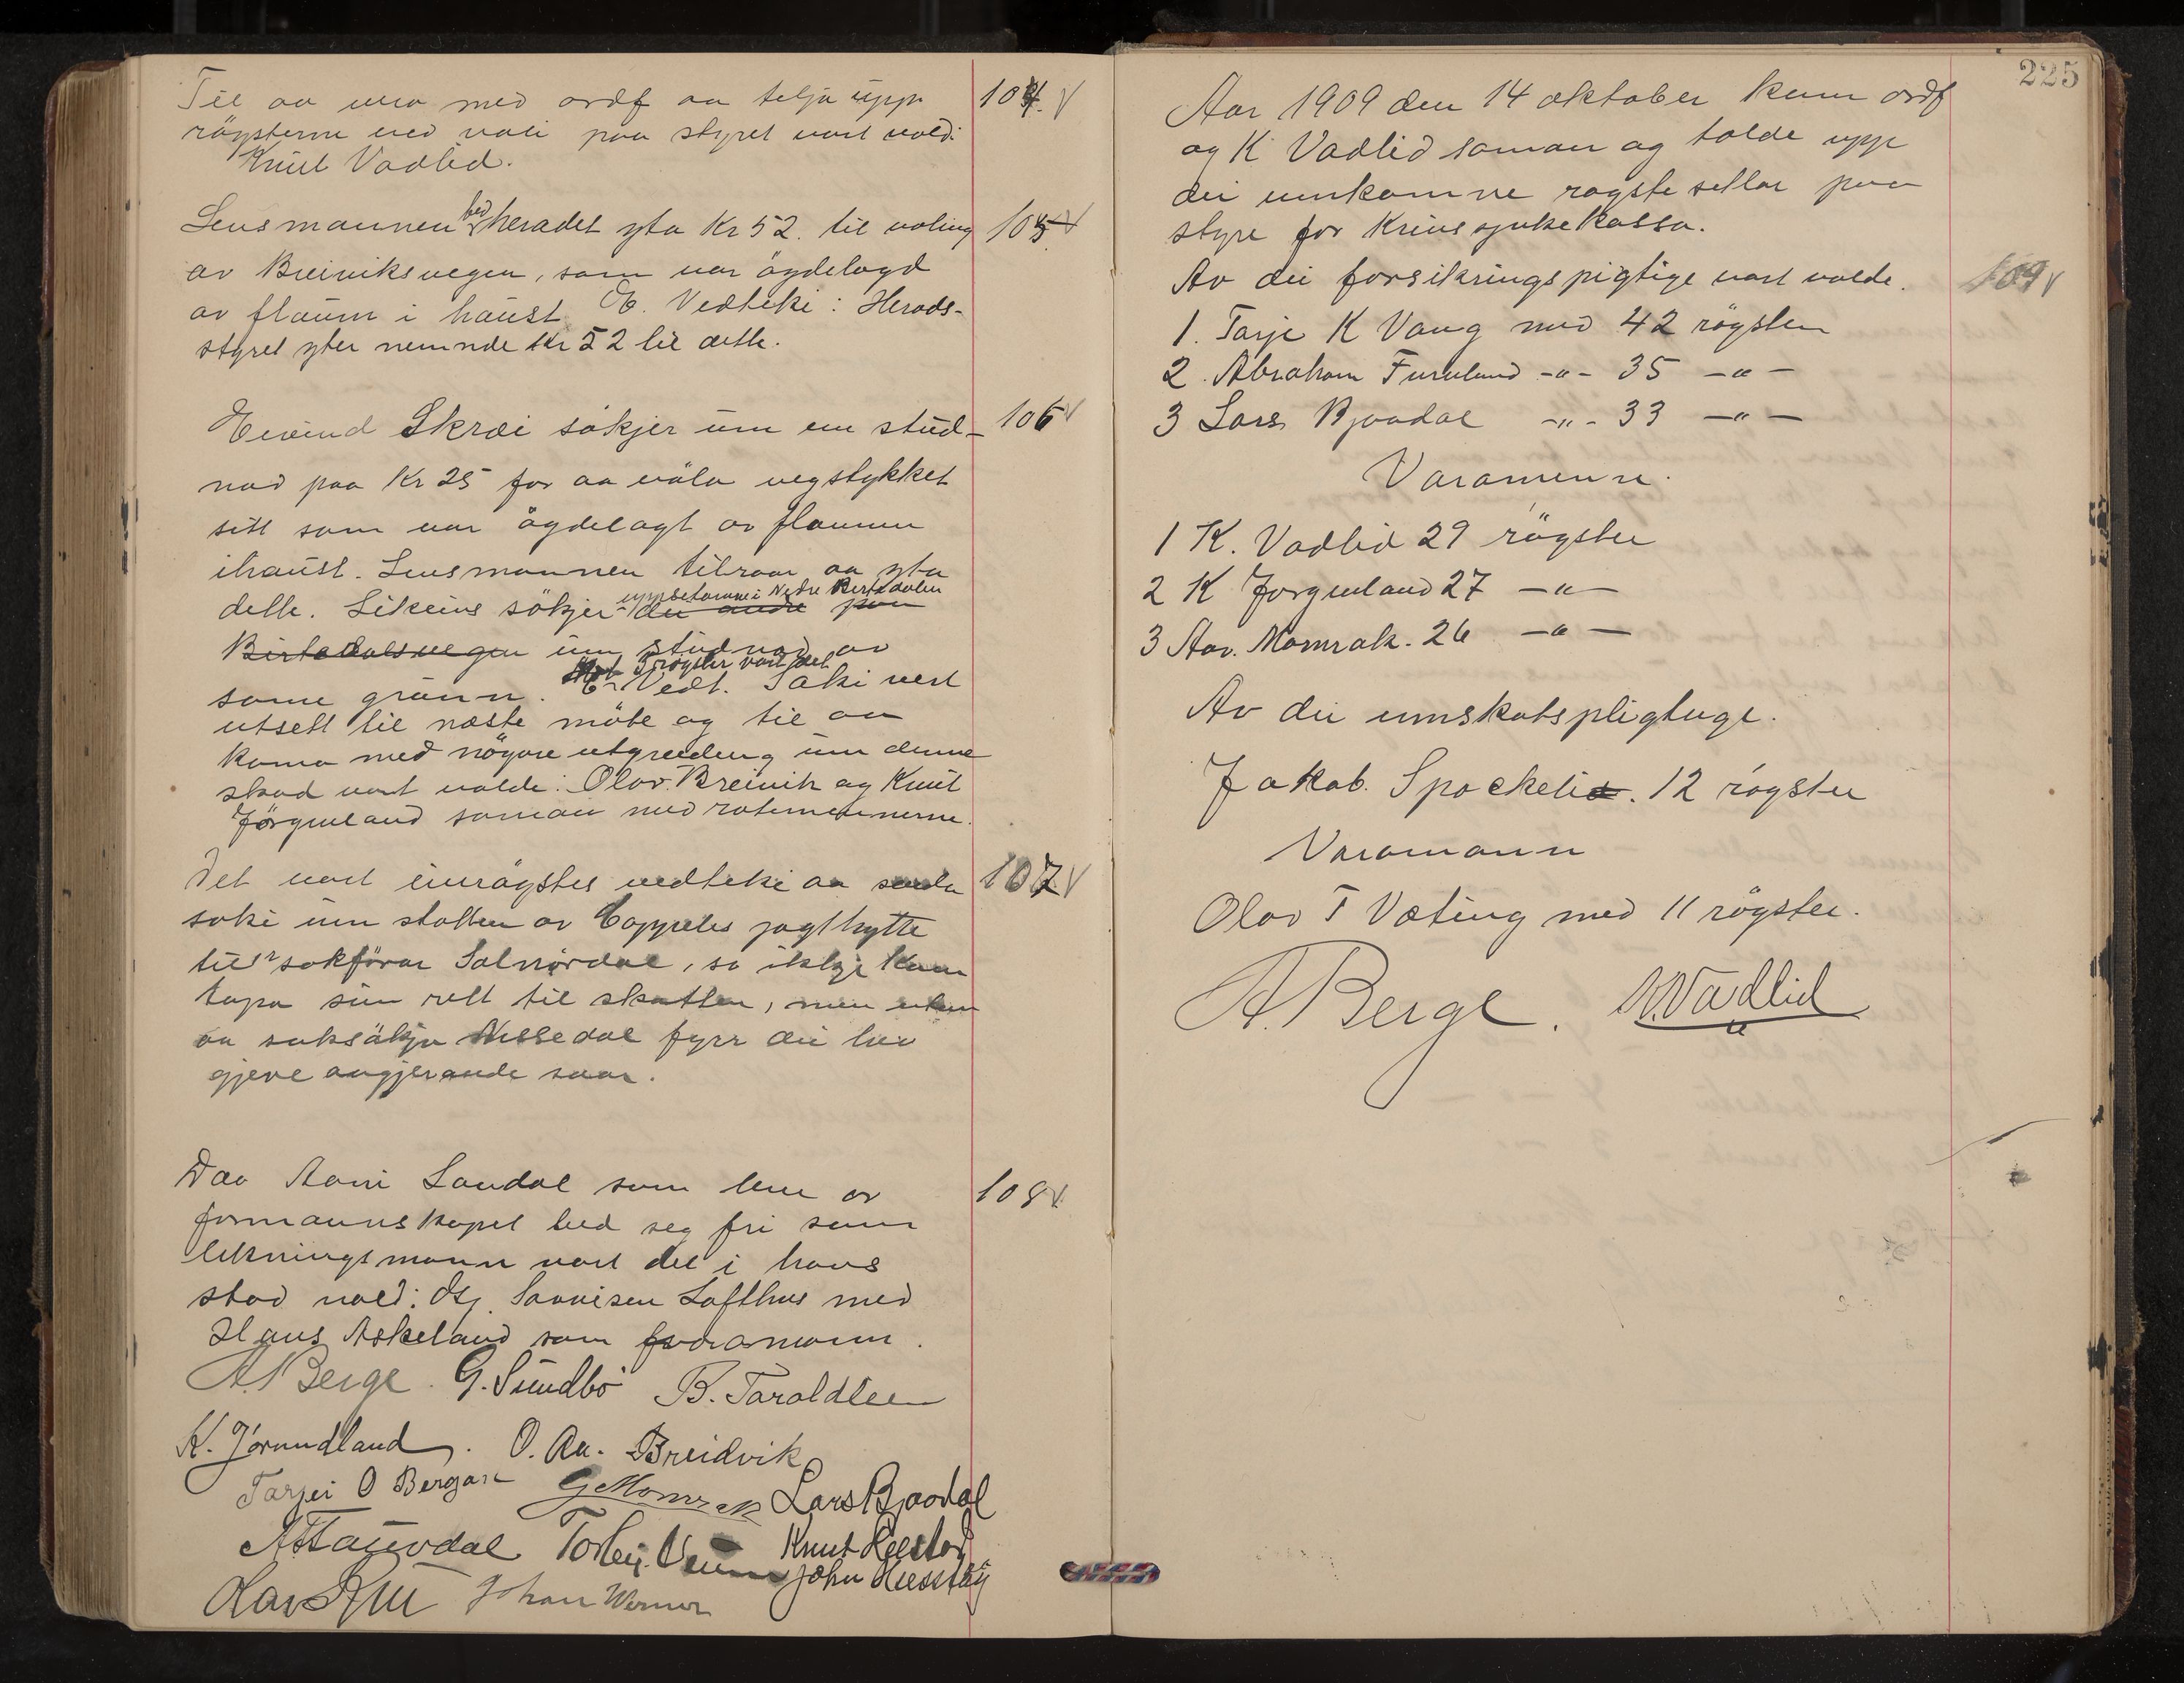 Til aa vera med ordf aa telja upp 104.
röysterne ved vali paa styret vart vald:
Knut Vadlid.
Lensmannen bed heradet yta Kr 52. til voling 105
av Breiviksvegen, som var öydelagd
av flaum i haust. Vedteki: Herads-
styret yter nemnde Kr 52 til dette.
Eivind Skræi sökjer um ein stud- 106
nad paa Kr 25 for aa völa vegstykket
sitt som var öydelagt av flaumen
ihaust. Lensmannen tilraar aa yta
uppsetarane i Nedre Birtedalen
dette. Likeins sökjer dei andre paa
Birtedalsvegen um studnad av
Mot 3 röyster vart det
same grunn. Vedt. Saki vert
utsett til næste möte og til aa
koma med nögare utgreiding um denne
skad vart valde: Olav Breivik og Knut
Jörgenland saman med rotemennerne.
Det vart einröystes vedteki aa senda 107
saki um skatten av Cappeles jagthytte
til sakförar Salnördal, so ikkje kann
tapa sin rett til skatten, men utan
aa saksökja Nissedal fyrr dei hev
gjeve avgjerande svar.
Daa Aani Landal som lem av 108
formannskapet bed seg fri som
likningsmann vart det i hans
stad vald: Saavisen Lofthus med
Hans Askeland som varamann.
A. Berge. G. Sundbö B. Taraldlien
K. Jörundland. O. Aa. Breidvik
Tarjei O Bergan G Momrak Lars Bjaadal
Knut
John
Johan Werner
225
Aar 1909 den 14 oktober kom ordf
og K Vadlid saman og talde upp
dei innkomne röystesetlar paa
styre for Krinssjukekassa.
Av dei forsikringspigtige vart valde. 109
1. Tarje K Vaag med 42 röyster
2. Abraham Furuland -"- 35 -"-
3 Lars Bjaadal -"- 33 -"-
Varamenn.
1 K. Vadlid 29 röyster
2 K Jorgenland 27 -"-
3 Aav. Momrak. 26 -"-
Av dei umskotspligtuge.
Jakob. Spockeli. 12 röyster
Varamann
Olav T Væting med 11 röyster.
A. Berge. K. Vadlid